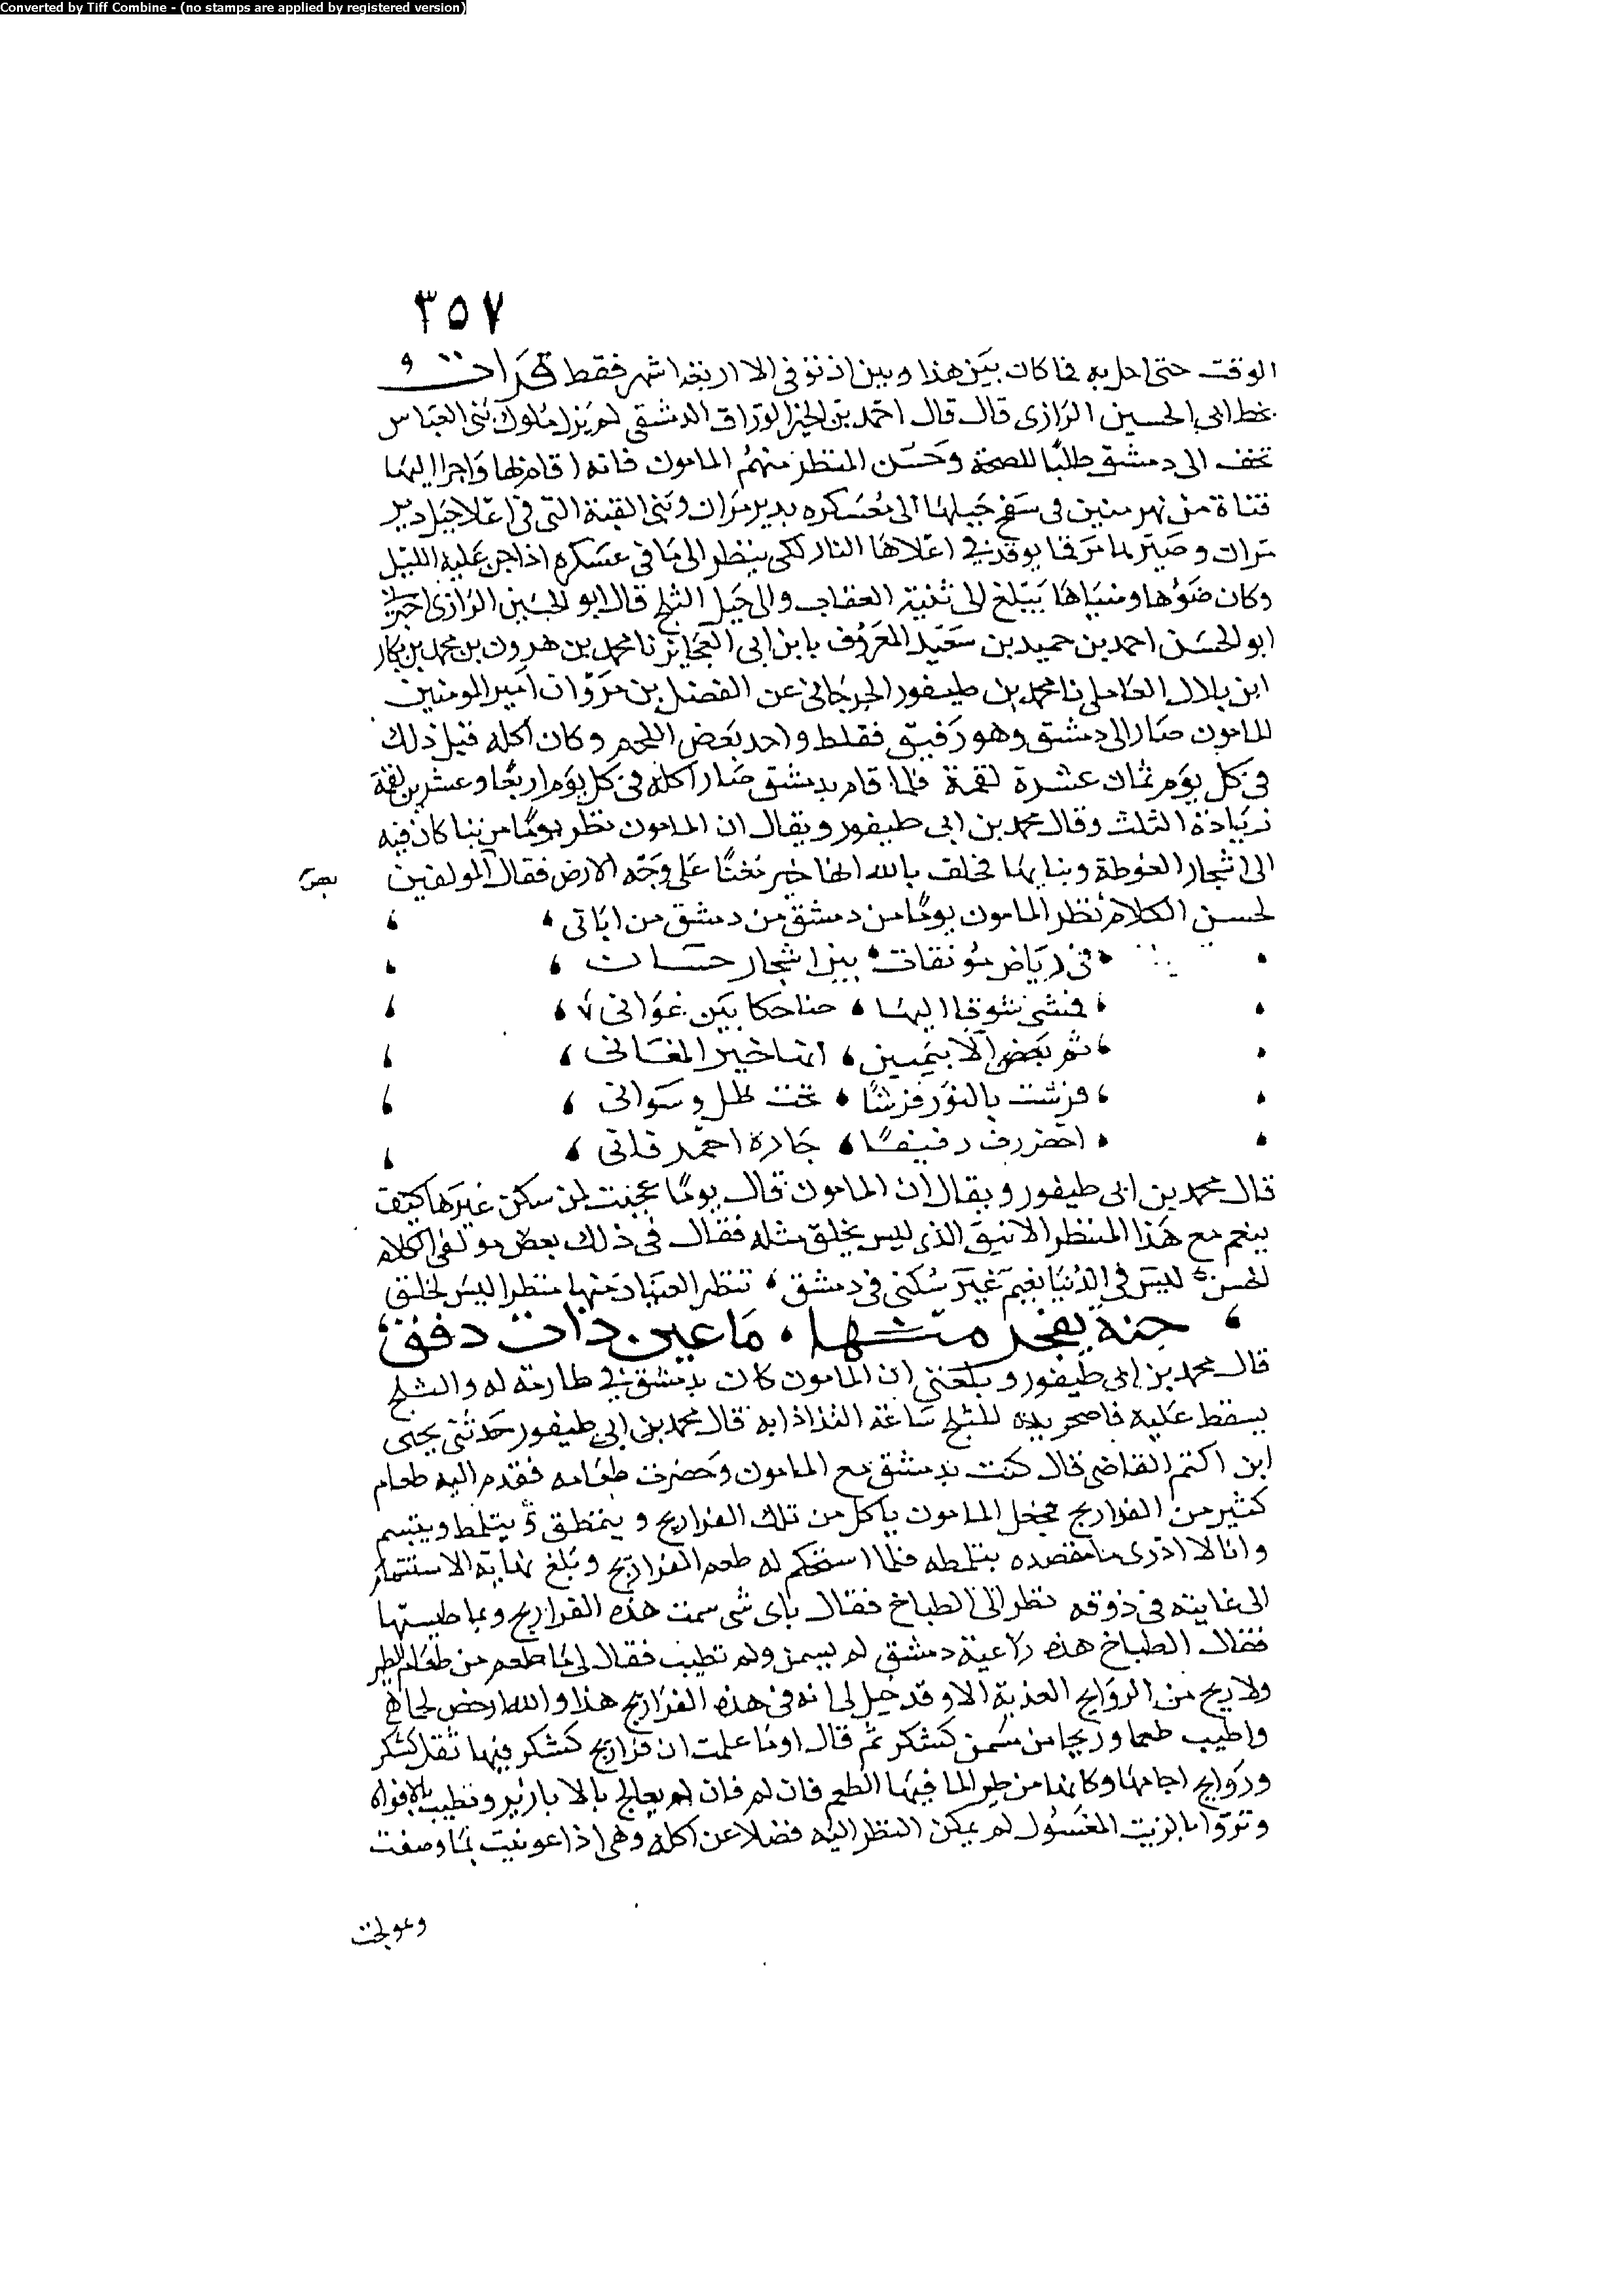 Converted by Tiff Combine - (no stamps are applied by registered version)
٣٥٧
الوقت حتى احل به فما كان بين هذا وبين اذ توفى الا اربعة اشهر فقط قرات
بخط ابى الحسين الرازى قال قال احمد بن الخير الوراق الدمشقى لم يزل ملوك بنى العباس
تخف الى دمشق طلبا للصحة وحسن المنظر منهم المامون فانه اقام بها واجرا اليها
قناة من نهر منين فى سفح جبلها الى معسكره بدير مران وبنى القبة التى فى اعلا جبل دير
مران وصير لها مرقا يوقد فى اعلاها النار لكى ينظر الى ما فى عسكره اذا جن عليه الليل
وكان ضوها وضياها يبلغ الى ثنية العقاب والى جبل الثلج قال ابو الحسين الرازى اخبرنى
ابو الحسن احمد بن حميد بن سعيد المعروف بابن ابى العجايز نا محمد بن هرون بن محمد بن بكار
ابن بلال العاملى نا محمد بن طيفور الجرجانى عن الفضل بن مروان امير المومنين
المامون صار الى دمشق وهو رفيق فقلط واحد بعض اللحم وكان اكله قبل ذلك
فى كل يوم ثمان عشرة لقمة فلما اقام بدمشق صار اكله فى كل يوم اربعا وعشرين لقمة
زيادة الثلث وقال محمد بن ابى طيفور ويقال ان المامون نظر يوما من بنا كان فيه
الى اشجار الغوطة وبنايها فحلف بالله انها خير مغنا على وجه الارض فقال المولفين
بعض
لحسن الكلام نظر المامون يوما من دمشق من دمشق من اباتى
فى رياض مونقات بين اشجار حسان
فنثى شوقا اليها ضاحكا بين غوانى
ثم بعض الا بيمين انها خير المغانى
فرشت بالنور فرشا تحت ظل وسوانى
قال محمد بن ابى طيفور ويقال ان المامون قال يوما عجبت لمن سكن غيرها كيف
ينعم مع هذا المنظر الانيق الذى ليس يخلق مثله فقال فى ذلك بعض مولفى الكلام
لحسن ليس فى الدنيا نعيم غير سكنى فى دمشق تنظر العباد منها منظرا ليس لخلق
جنة يفجر منها ما عين ذات دفق
قال محمد بن ابى طيفور وبلغنى ان المامون كان بدمشق فى طارمة له والثلج
يسقط عليه فاصحو بيده للثلج ساعة الغذا ذابه قال محمد بن ابى طيفور حدثنى يحيى
ابن اكثم القاضى قال كنت بدمشق مع المامون وحضرت طعامه فقدم اليه طعام
كثير من الفراريج فجعل المامون ياكل من تلك الفراريج ويتمطق ويتلمظ ويتبسم
وانا لا ادرى ما مقصده بتلمظه فلما استحكم له طعم الفراريج وبلغ نهاية الاستتمام
الى غايته فى ذوقه نظر الى الطباخ فقال باى شى سمنت هذه الفراريج وبما طيبتها
فقال الطباخ هذه راعية دمشق لم يسمن ولم تطيب فقال لى ما طعم من طعام الطير
ولا ريح من الروايح العذبة الا وقد خيل لى انه فى هذه الفراريج هذا والله ارخص لحما
واطيب طعما وريحا من سمن كسكر ثم قال اوما علمت ان فراريج كسكر فيها ثقل كسكر
وروايح اجامها وكانها من طير الما فيها الطعم فان لم فان لم يعالج بالابازير وتطيب بالافواه
وتروا بالزيت المغسول لم يمكن النظر اليه فضلا عن اكله وهى اذا عونيت بما وصفت
وعولجت